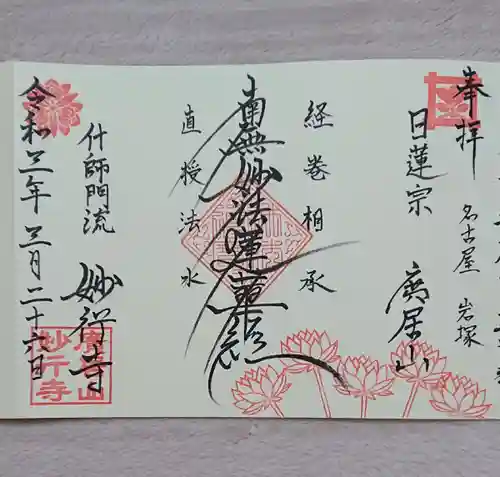 奉拝
名古屋 岩塚
日蓮宗
廣居山
経巻相承
南無妙法蓮華経
直授法水
什師門流
妙行寺
令和三年三月二十六日
廣居山
妙行寺